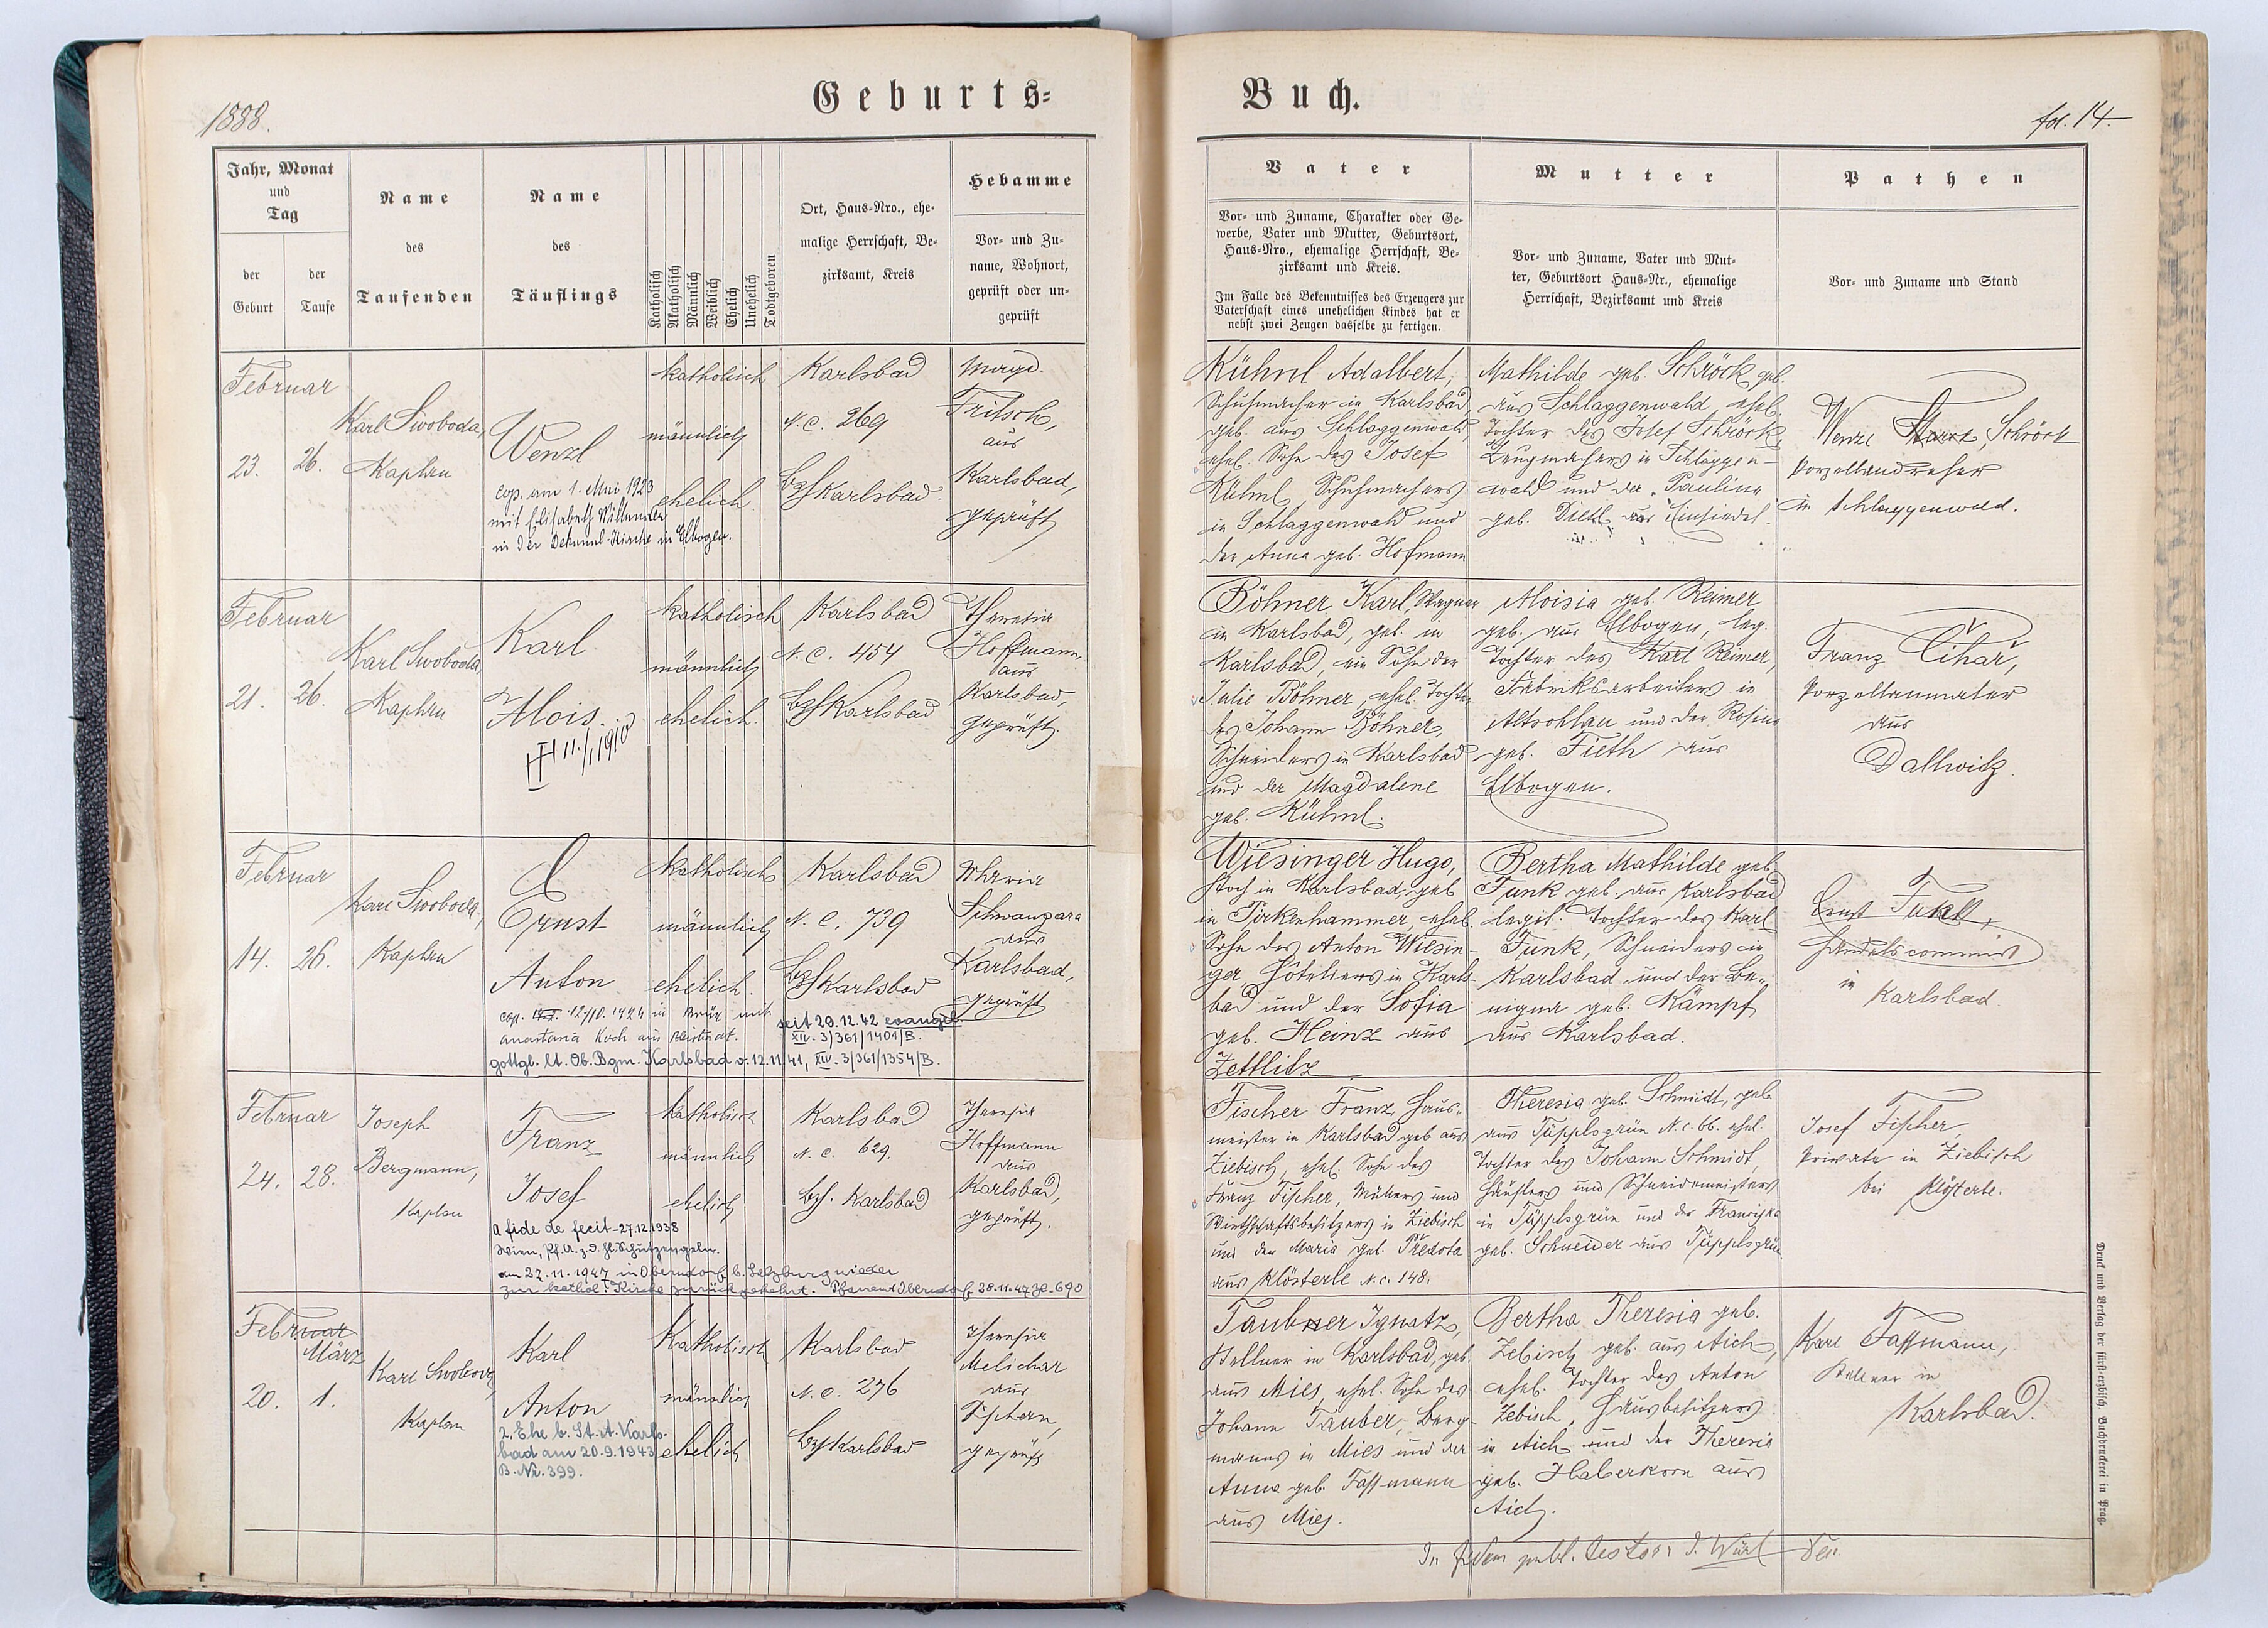 1888.
Geburts-
Buch.
fol. 14.
Jahr, Monat
und
Tag
der
Geburt
der
Taufe
Name
des
Taufenden
Name
des
Täuflings
Katholisch
Akatholisch
Männlich
Weiblich
Ehelich
Unehelich
Todtgeboren
Ort, Haus-Nro., ehe-
malige Herrschaft, Be-
zirksamt, Kreis
Hebamme
Vor- und Zu-
name, Wohnort,
geprüft oder un-
geprüft
Vater
Vor- und Zuname, Charakter oder Ge-
werbe, Vater und Mutter, Geburtsort,
Haus-Nro., ehemalige Herrschaft, Be-
zirksamt und Kreis.
Im Falle des Bekenntnisses des Erzeugers zur
Vaterschaft eines unehelichen Kindes hat er
nebst zwei Zeugen dasselbe zu fertigen.
Mutter
Vor- und Zuname, Vater und Mut-
ter, Geburtsort Haus-Nr., ehemalige
Herrschaft, Bezirksamt und Kreis
Pathen
Vor- und Zuname und Stand
Februar
23.
26.
Karl Swoboda,
Kaplan
Wenzl
cop. am 1. Mai 1923
mit Elisabeth
in der Dekanal-Kirche in Elbogen.
katholisch
männlich
ehelich.
Karlsbad
N. C. 269
Bzf Karlsbad.
Magd.
Fritsch,
aus
Karlsbad,
geprüft
Kühnl Adalbert,
Schuhmacher in Karlsbad,
geb. aus Schlaggenwald,
ehel. Sohn des Josef
Kühnl, Schuhmachers
in Schlaggenwald und
der Anna geb. Hofmann
Mathilde geb. Schröck, geb.
aus Schlaggenwald ehel.
Tochter des Josef Schröck,
Zeugmachers in Schlaggen-
wald und der Paulina
geb. Dietl aus Einsiedel.
Wenzl Schröck
Porzellandreher
in Schlaggenwald.
Februar
21.
26.
Karl Swoboda,
Kaplan
Karl
Alois.
11./I 1910
katholisch
männlich
ehelich.
Karlsbad
N. C. 454
Bzf Karlsbad
Theresia
Hoffmann,
aus
Karlsbad,
geprüft.
Böhner Karl, Wagner
in Karlsbad, geb. in
Karlsbad, ein Sohn der
Julie Böhner, ehel. Tochter
des Johann Böhner,
Schneiders in Karlsbad
und der Magdalene
geb. Kühnl.
Aloisia geb. Reimer
geb. aus Elbogen, leg.
Tochter des Karl Reimer,
Fabriksarbeiters in
Altrohlau und der Rosina
geb. Fieth aus
Elbogen.
Franz Čihař,
Porzellanmaler
aus
Dallwitz.
Februar
14.
26.
Karl Swoboda,
Kaplan
Ernst
Anton
cop. 12./10. 1924 in Brüx mit
Anastasia Koch aus Bleistadt.
gottgl. lt. Ob. Bgm. Karlsbad v. 12.11.41, XIV-3/361/1354/B.
seit 29.12.42 evangel.
XIV-3/361/1401/B.
katholisch
männlich
ehelich.
Karlsbad
N. C. 739
Bzf Karlsbad
Maria
Schwangara
aus
Karlsbad,
geprüft
Wiesinger Hugo,
Koch in Karlsbad, geb.
in Pirkenhammer, ehel.
Sohn des Anton Wiesin-
ger, Hôteliers in Karls-
bad und der Sofia
geb. Heinz aus
Zettlitz
Bertha Mathilde geb.
Funk geb. aus Karlsbad
legit. Tochter des Karl
Funk, Schneiders in
Karlsbad und der Be-
nigna geb. Kämpf
aus Karlsbad.
Ernst Funk,
Handelscommis
in
Karlsbad.
Februar
24.
28.
Joseph
Bergmann,
Kaplan
Franz
Josef
a fide de fecit - 27.12.1938
Wien, Pf. A. z. d. hl. Schutzengeln.
am 27.11.1947 in Oberndorf b. Salzburg wieder
zur kathol. Kirche zurückgekehrt. Pfarramt Oberndorf 28.11.47 Zl. 690
katholisch
männlich
ehelich.
Karlsbad
N. C. 629.
Bzf. Karlsbad
Theresia
Hoffmann
aus
Karlsbad,
geprüft.
Fischer Franz, Haus-
meister in Karlsbad geb. aus
Ziebisch, ehel. Sohn des
Franz Fischer, Müllers und
Wirthschaftsbesitzers in Ziebisch
und der Maria geb. Předota
aus Klösterle N. c. 148.
Theresia geb. Schmidt, geb.
aus Tüppelsgrün N. c. 66. ehel.
Tochter des Johann Schmidt,
Häuslers und Schneidermeisters
in Tüppelsgrün und der Franziska
geb. Schneider aus Tüppelsgrün
Josef Fischer,
Private in Ziebisch
bei Klösterle.
Februar
März
20.
1.
Karl Swoboda,
Kaplan
Karl
Anton
2. Ehe b. St. A. Karls-
bad am 20.9.1943
B. Nr. 399.
Katholisch
männlich
ehelich
Karlsbad
N. C. 276
Bzf Karlsbad
Theresia
Melichar
aus
Fischern,
geprüft
Tauber Ignatz,
Kellner in Karlsbad, geb.
aus Mies, ehel. Sohn des
Johann Tauber, Berg-
manns in Mies und der
Anna geb. Fassmann
aus Mies.
Bertha Theresia geb.
Zebisch, geb. aus Aich,
ehel. Tochter des Anton
Zebisch, Hausbesitzers
in Aich und der Theresia
geb. Haberkorn aus
Aich.
Karl Fassmann,
Kellner in
Karlsbad.
In fidem publ. testor:
Druck und Verlag der fürst-erzbisch. Buchdruckerei in Prag.